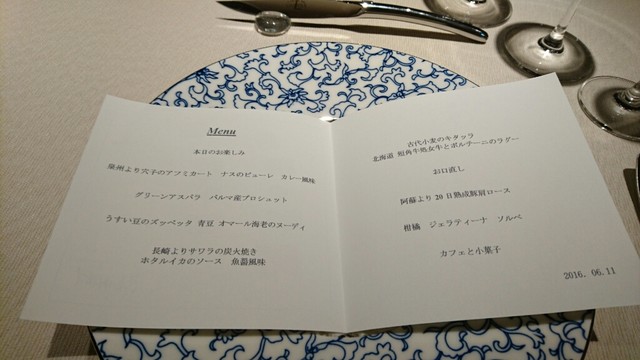 Menu
本日のお楽しみ
泉州より穴子のアフミカート ナスのピューレ カレー風味
グリーンアスパラ パルマ産プロシェット
うすい豆のズッペッタ 青豆 オマール海老のヌーディ
長崎よりサワラの炭火焼き
ホタルイカのソース 魚醤風味
古代小麦のキタッラ
北海道 短角牛処女牛とポルチーニのラグー
お口直し
阿蘇より20日熟成豚肩ロース
柑橘 ジェラティーナ ソルベ
カフェと小菓子
2016. 06.11